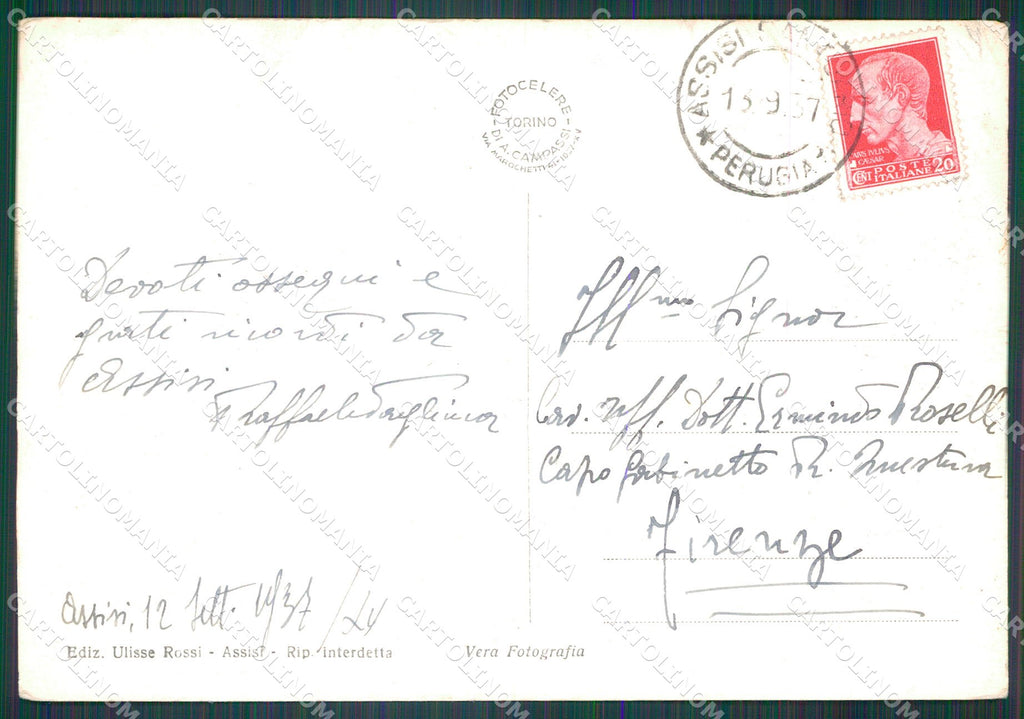 FOTOCELERE
TORINO
DI A. CAMPASSI
ASSISI
13.9.37
PERUGIA
CAIVS IVLIVS
CAESAR
CENT POSTE ITALIANE 20
Devoti ossequi e
grati ricordi da
Assisi
Ill mo Signor
Cav. Uff. Dott. Erminio Roselli
Capo Gabinetto R. Questura
Firenze
Assisi, 12 Sett. 1937/XV
Ediz. Ulisse Rossi - Assisi - Rip. interdetta
Vera Fotografia
CARTOLINOMANIA